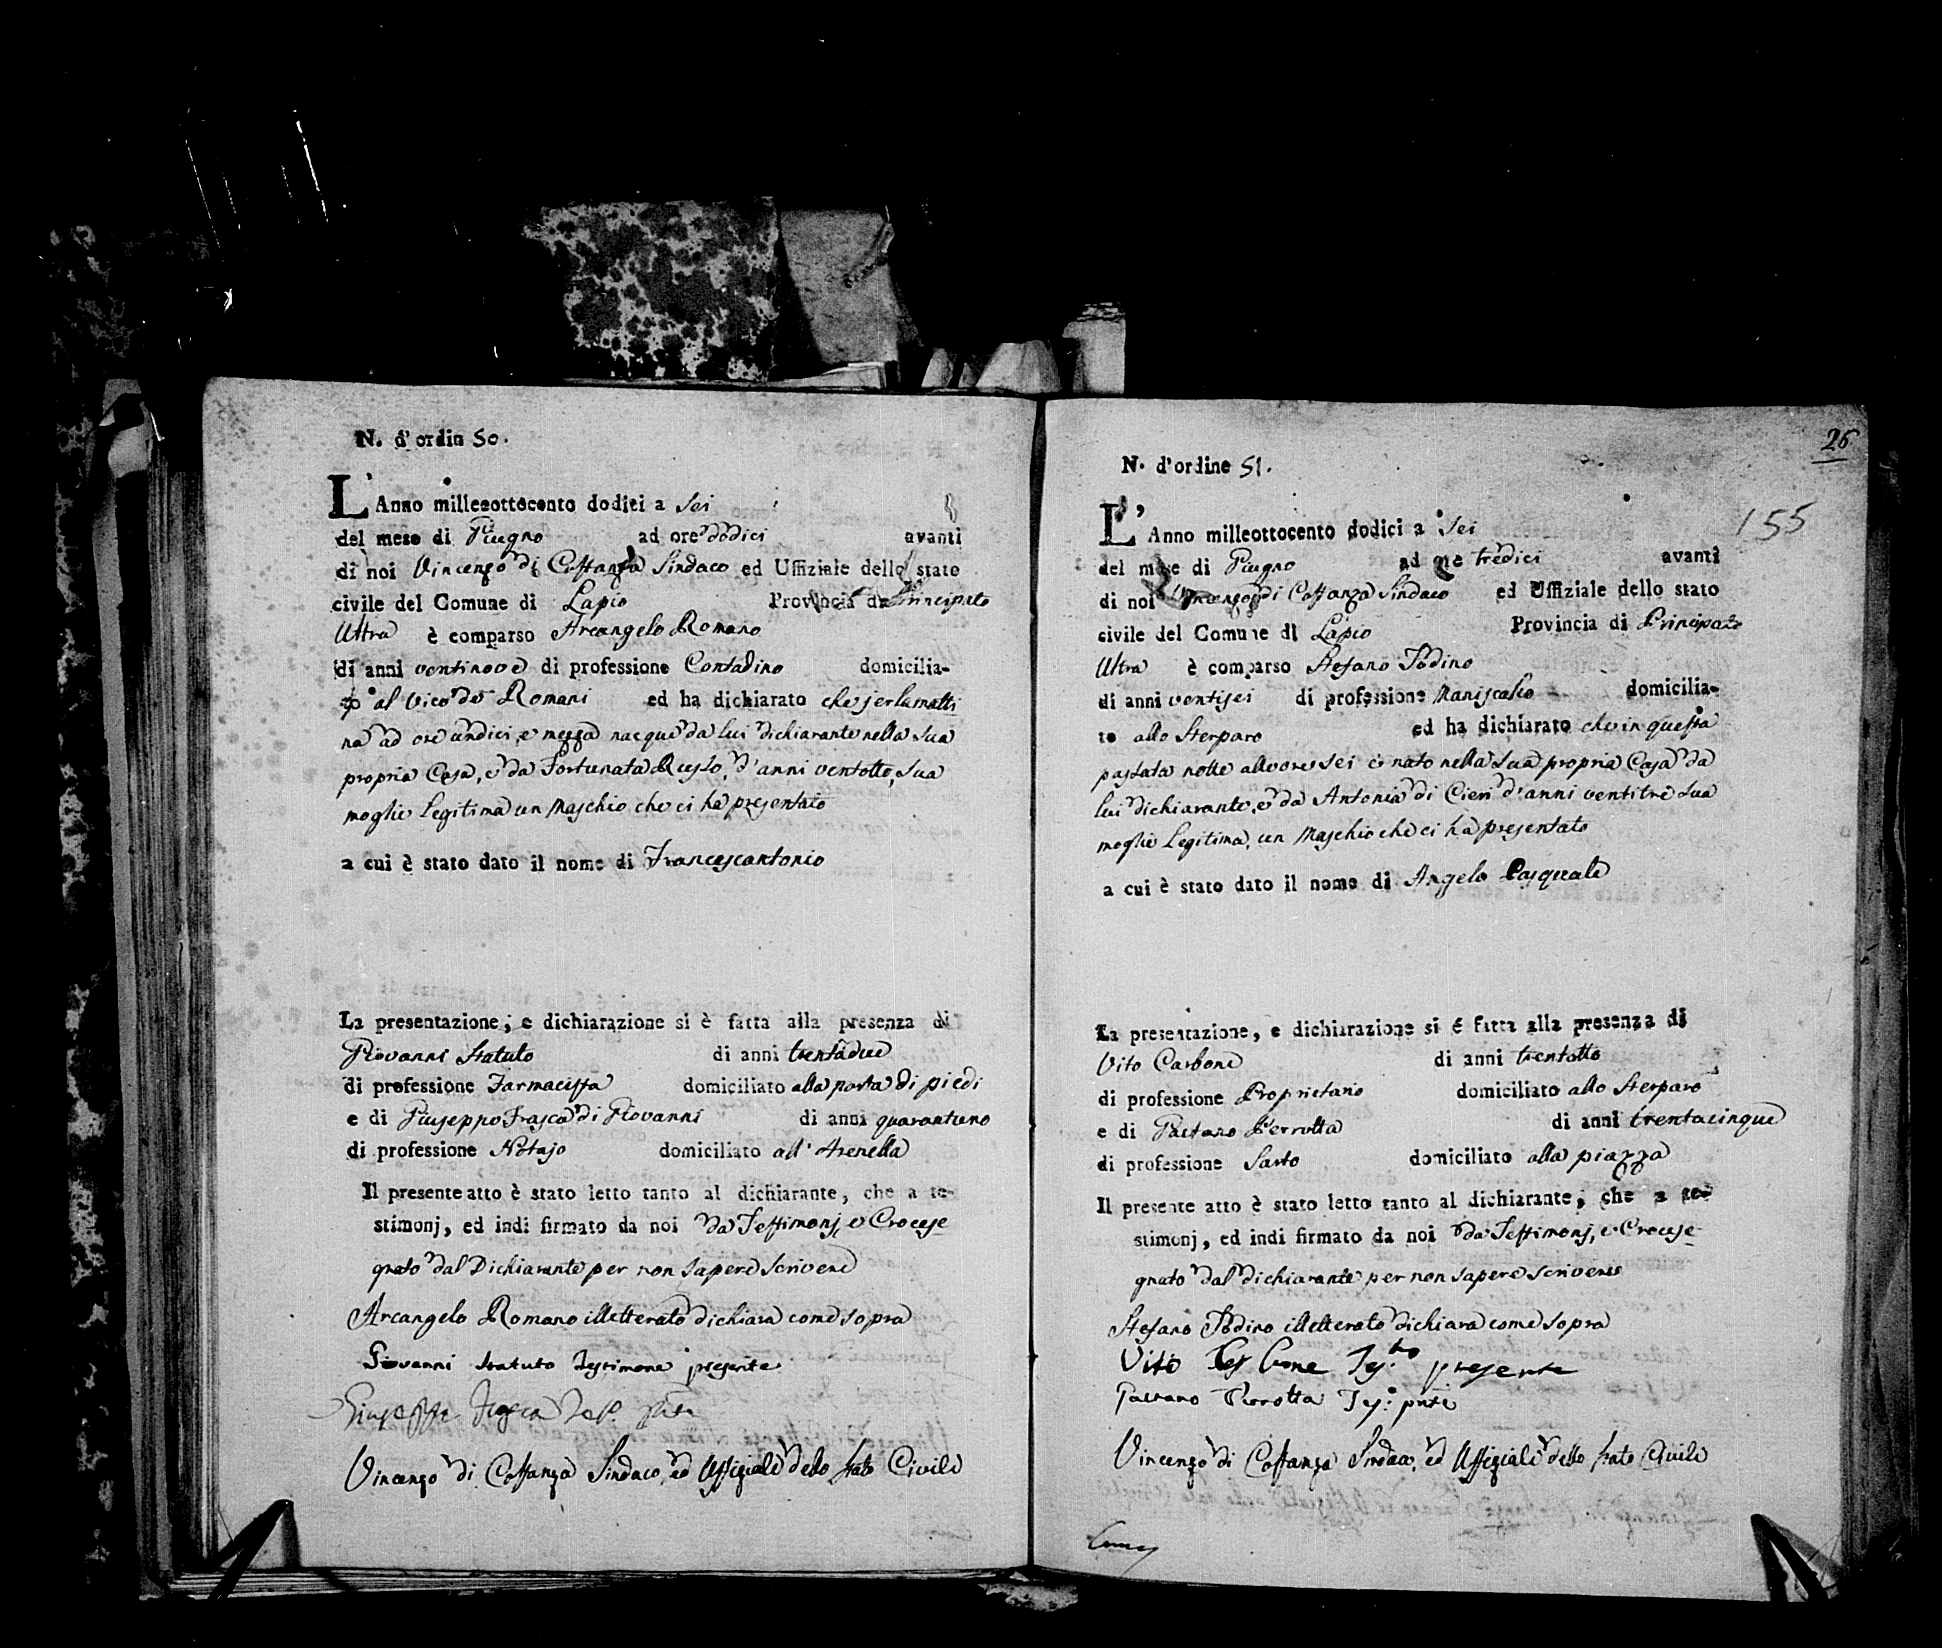 N. d'ordin 50.
L'Anno milleeottocento dodici a Sei
del mese di Giugno ad ore dodici avanti
di noi Vincenzo di Costanza Sindaco ed Uffiziale dello stato
civile del Comune di Lapio Provincia di Principato
Ultra è comparso Arcangelo Romano
di anni ventinove di professione Contadino domicilia-
to al Vico de Romani ed ha dichiarato che jerlamatti
na ad ore undici, e mezza nacque da lui dichiarante nella sua
propria Casa, e da Fortunata Russo, d'anni ventotto, sua
moglie legitima un Maschio che ci ha presentato
a cui è stato dato il nome di Francescantonio
La presentazione, e dichiarazione si è fatta alla presenza di
Giovanni Statuto di anni trentadue
di professione Farmacista domiciliato alla porta di piedi
e di Giuseppe Frasca di Giovanni di anni quarantuno
di professione Notajo domiciliato all'Arenella
Il presente atto è stato letto tanto al dichiarante, che a te-
stimonj, ed indi firmato da noi da Testimonj, e Crocese-
gnato dal Dichiarante per non sapere scrivere
Arcangelo Romano illetterato dichiara come sopra
Giovanni Statuto Testimone presente
Giuseppe Frasca
Vincenzo di Costanza Sindaco, ed Uffiziale dello Stato Civile
26
155
N. d'ordine 51.
L'Anno milleottocento dodici a Sei
del mese di Giugno ad ore tredici avanti
di noi Vincenzo di Costanza Sindaco ed Uffiziale dello stato
civile del Comune di Lapio Provincia di Principato
Ultra è comparso Stefano Iodino
di anni ventisei di professione Maniscalco domicilia-
to allo Sterparo ed ha dichiarato che in questa
passata notte alle ore sei è nato nella sua propria Casa da
lui dichiarante, e da Antonia di Cieri d'anni ventitrè sua
moglie legitima, un Maschio che ci ha presentato
a cui è stato dato il nome di Angelo Pasquale
La presentazione, e dichiarazione si è fatta alla presenza di
Vito Carbone di anni trentotto
di professione Proprietario domiciliato allo Sterparo
e di Gaetano Perrotta di anni trentacinque
di professione Sarto domiciliato alla piazza
Il presente atto è stato letto tanto al dichiarante, che a te-
stimonj, ed indi firmato da noi da Testimonj, e Crocese-
gnato dal dichiarante per non sapere scrivere
Stefano Iodino illetterato dichiara come sopra
Vito Carbone Tes.to presente
Gaetano Perrotta Tes.o pnte
Vincenzo di Costanza Sindaco, ed Uffiziale dello Stato Civile